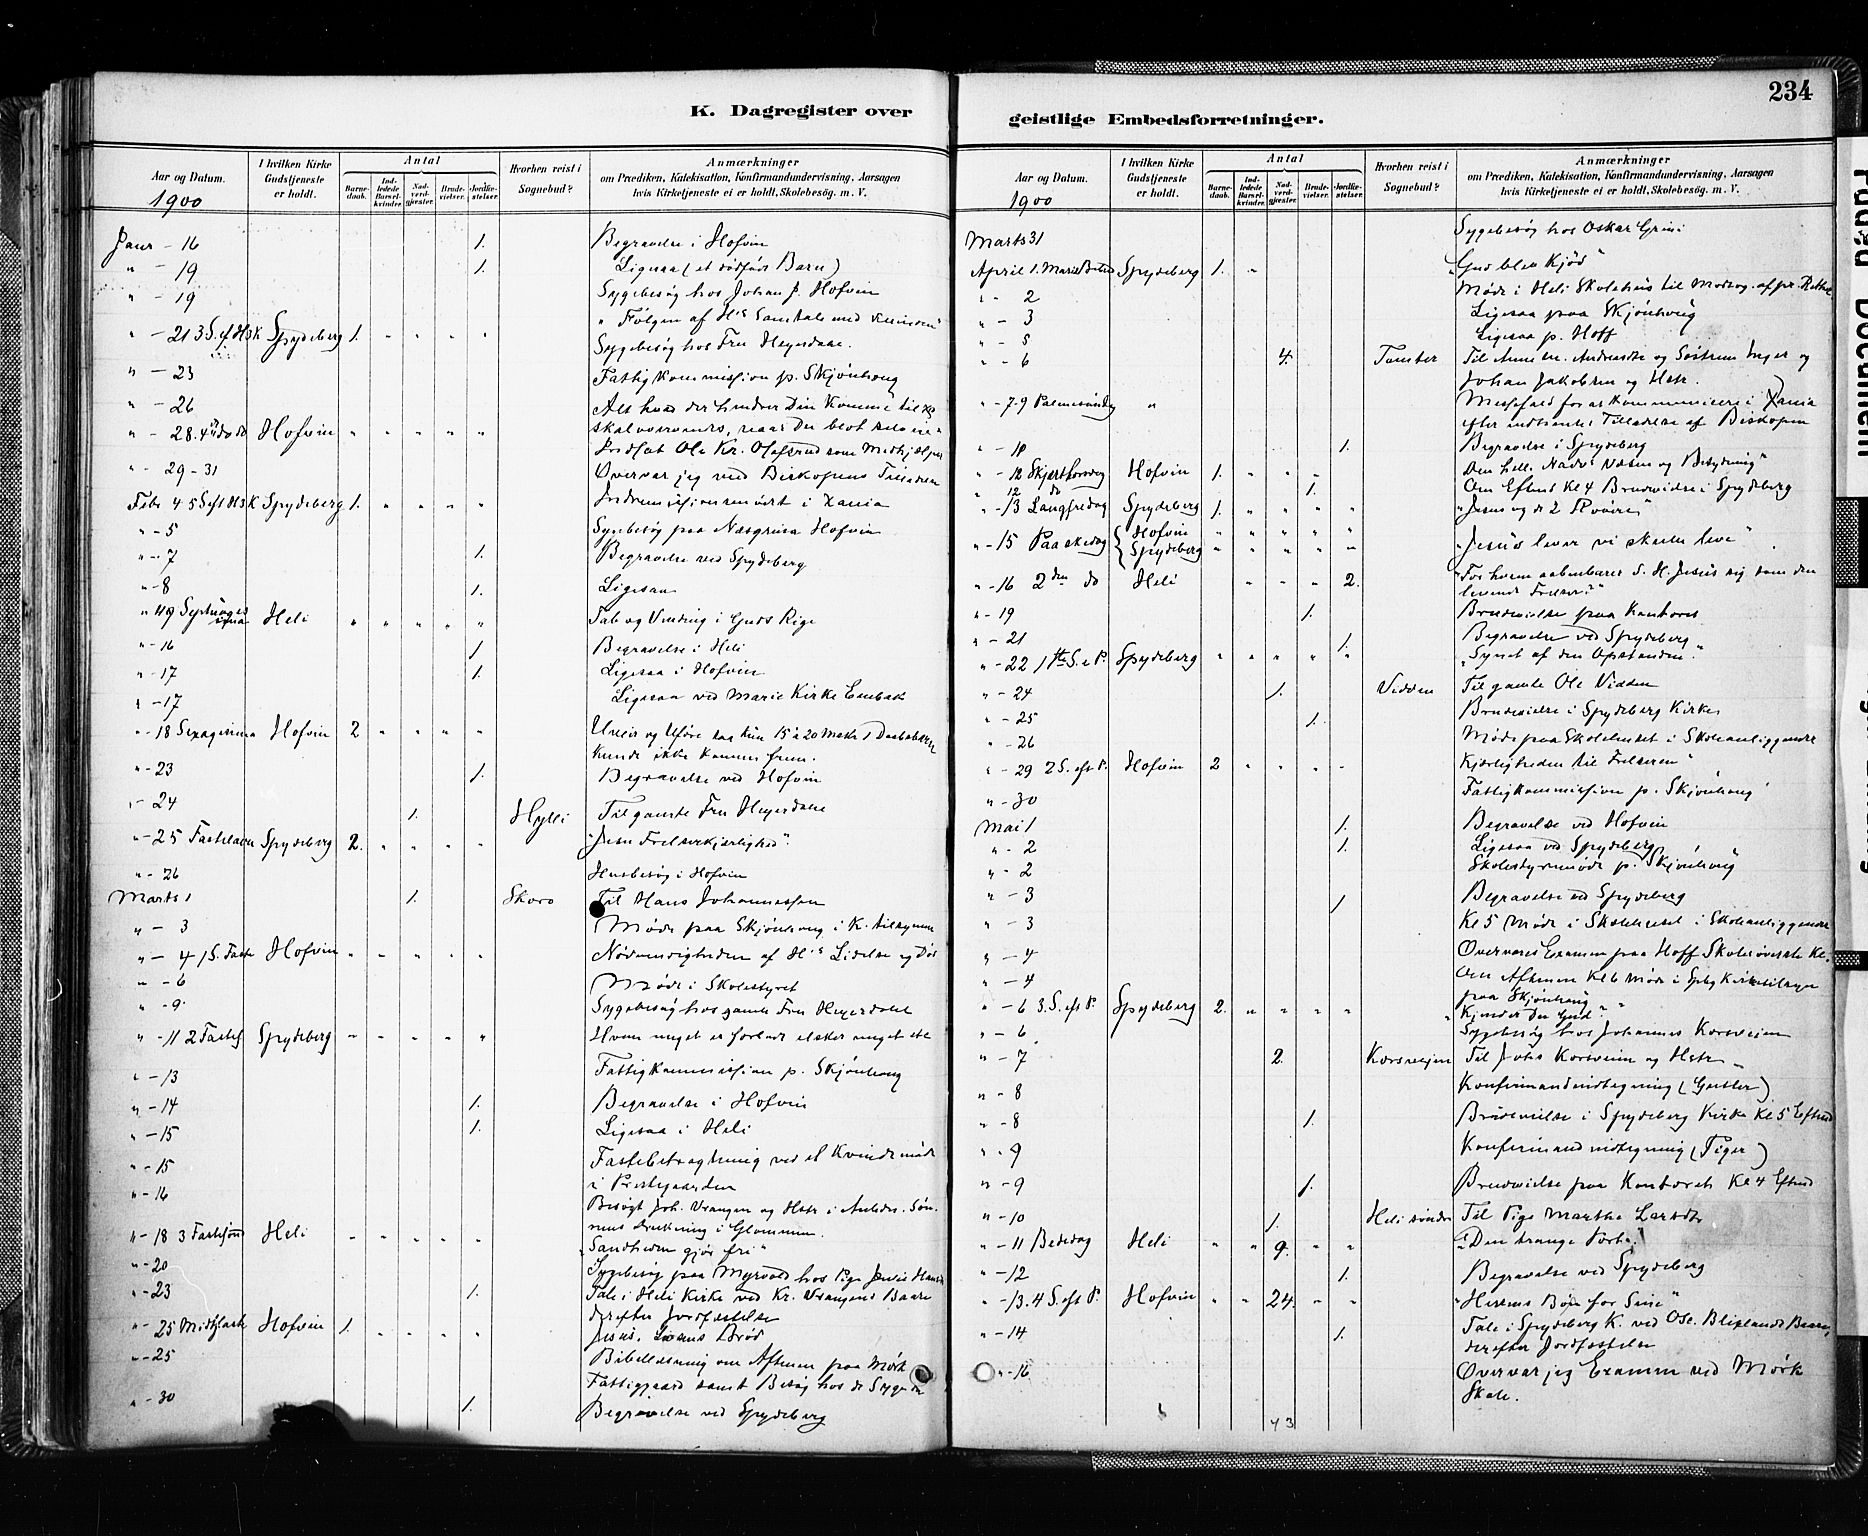 K. Dagregister over
Aar og Datum.
1900
I hvilken Kirke Gudstjeneste er holdt.
Antal
Barnedaab.
Indledede Barselkvinder.
Nadverdgjæster.
Brudevielser.
Jordfæstelser.
Hvorhen reist i Sognebud?
Anmærkninger
om Prædiken, Katekisation, Konfirmandundervisning, Aarsagen
hvis Kirketjeneste ei er holdt, Skolebesøg. m. V.
Janr - 16 1. Begravelse i Hofvin
" - 19 1. Ligesaa (et dødfødt Barn)
" - 19 Sygebesøg hos Johan J. Hofvin
" - 21 3 S. ef H3K Spydeberg 1. " " " " " Følgen af H's Samtale med Kvinden"
Sygebesøg hos Fru Heyerdahl.
" - 23 Fattigkommission p. Skjønhoug
" - 26
" - 28. 4 do do Hofvin " " " " " Alt hvad der hindrer Din Komme til
skal overvinnes, naar Du blot
Indsat Ole Kr. Olafsrud som Medhjælper
" - 29-31 Overvar jeg ved Biskopens
Indremissionsmødet i Xania
Febr 4 5 S eft H3K Spydeberg 1. " " " "
" - 5 Sygebesøg paa Næsgrina Hofvin
" - 7 1. Begravelse ved Spydeberg
" - 8 1. Ligesaa
" Septuages Heli " " " " " Tab og Vinding i Guds Rige
" - 16 1 Begravelse i Heli
" - 17 1. Ligesaa i Hofvin
" - 17 Ligesaa ved Marie Kirke
" - 18 Sexagesima Hofvin 2 " " " " Uveir og Uføre saa kun 15 a 20 Mskr 1 Daabsbarn
kunde ikke komme frem.
" - 23 1. Begravelse ved Hofvin
" - 24 1. Hylli Til gamle Fru Heyerdahl
" - 25 Fastelavn Spydeberg 2. " " " " "Jesu Frelserkjærlighed".
" - 26 Husbesøg i Hofvin
Marts 1 1. Skoro Til Hans Johannessen
" - 3 Møde paa Skjønhoug i K. tilsynet
" - 4 1 S. Faste Hofvin " " " " " Nødvendigheden af H's Lidelse og Død
" - 6 Møde i Skolestyret
" - 9 Sygebesøg hos gamle Fru Heyerdahl
" - 11 2 Fastes Spydeberg " " " " " Hvem meget er forladt elsker meget etc
" - 13 Fattigkommission p. Skjønhoug
" - 14 1. Begravelse i Hofvin
" - 15 1. Ligesaa i Heli
" - 15 Fastebetragtning ved et Kvindemøde
i Præstegaarden
" - 16 Besøgt Joh. Vrangen og Hstr i Anledn. Søn-
nens drukning i Glommen.
" - 18 3 Fastesønd Heli " " " " " "Sandheden gjør fri"
" - 20 Sygebesøg paa Myrvold hos Pige
" - 23 1. Tale i Heli Kirke ved Kr. Vrangens Baare
derefter Jordfæstelse
" - 25 Midtfaste Hofvin 1. " " " " Jesus, Livens Brød
" - 25 Bibellæsning om Aftenen paa Mørk
Fattiggaard samt Besøg hos de Syge
" - 30 1. Begravelse ved Spydeberg
234
geistlige Embedsforretninger.
Aar og Datum.
1900
I hvilken Kirke Gudstjeneste er holdt.
Antal
Barnedaab.
Indledede Barselkvinder.
Nadverdgjæster.
Brudevielser.
Jordfæstelser.
Hvorhen reist i Sognebud?
Anmærkninger
om Prædiken, Katekisation, Konfirmandundervisning, Aarsagen
hvis Kirketjeneste ei er holdt, Skolebesøg. m. V.
Marts 31 Sygebesøg hos Oskar Grini
April 1. Marie Bebud Spydeberg 1. " "Gud blev Kjød"
" - 2 Møde i Heli Skolehus til
" - 3 Ligesaa paa Skjønhoug
" - 5 Ligesaa p. Hoff
" - 6 4. Tomter Til og Søstrene Inger og
Johan Jakobsen og Hstr.
" - 7-9 Palmesøndag " Messefald for at kommunicere i Xania
efter indhentet Tilladelse af Biskopen
" - 10 1. Begravelse i Spydeberg
" - 12 Skjærthorsdag Hofvin 1. " " " Om hell. Nadv's Væsen og Betydning"
" 12 do 1. Om Eftmt Kl 4 Brudevielse i Spydeberg
" - 13 Langfredag Spydeberg 1. " " " " "Jesus og de 2 Røvere"
" - 15 Paaskedag Hofvin " " " " "
Spydeberg " " " " " "Jesus lever vi skulle leve"
" - 16 2den do Heli " " " 2. "For hvem aabenbarer S. H. Jesus sig som den
levende Frelser?"
" - 19 1. Brudevielse paa Kontoret
" - 21 1. Begravelse ved Spydeberg
" - 22 1ste S. e P. Spydeberg " " " " " "Synet af den Opstandne."
" - 24 1. Vidden Til gamle Ole Vidden
" - 25 1. Brudevielse i Spydeberg Kirke
" - 26 Møde paa Skolelokalet i Skoleanliggender
" - 29 2 S. eft P. Hofvin 2 " " " " Kjærligheden til Frelseren"
" - 30 Fattigkommission p. Skjønhoug
Mai 1 1. Begravelse ved Hofvin
" - 2 1. Ligesaa ved Spydeberg
" - 2 Skolestyremøde p. Skjønhoug
" - 3 1 Begravelse ved Spydeberg
" - 3 Kl 5 Møde i Skolelokalet i Skoleanliggender
" - 4 Overværet Examen paa Hoff Skole
" - 4 Om Aftenen Kl 6 Møde i Spbg Kirketilsyn
paa Skjønhoug
" - 6 3. S. eft P. Spydeberg 2. " " " " "Kjender Du Gud"
" - 6 Sygebesøg hos Johannes Korsveien
" - 7 2. Korsveien Til Johs Korsveien og Hstr
" - 8 Konfirmandindtegning (Gutter)
" - 8 1. Brudevielse i Spydeberg Kirke Kl 5 Eftmd
" - 9 Konfirmandindtegning (Piger)
" - 9 1. Brudevielse paa Kontoret Kl 4 Eftmd
" - 10 1. Heli søndre Til Pige Marthe Larsdtr
" - 11 Bededag Heli " " 9. " " "Den trange Port."
" - 12 1. Begravelse ved Spydeberg
" - 13. 4 S. eft P. Hofvin " " 24. " " "Herrens Bøn for Sine"
" - 14 1. Tale i Spydeberg K. ved Ole Blixlands Baare,
derefter Jordfæstelse
" - 16 Overvar jeg Examen ved Mørk
Skole.
43